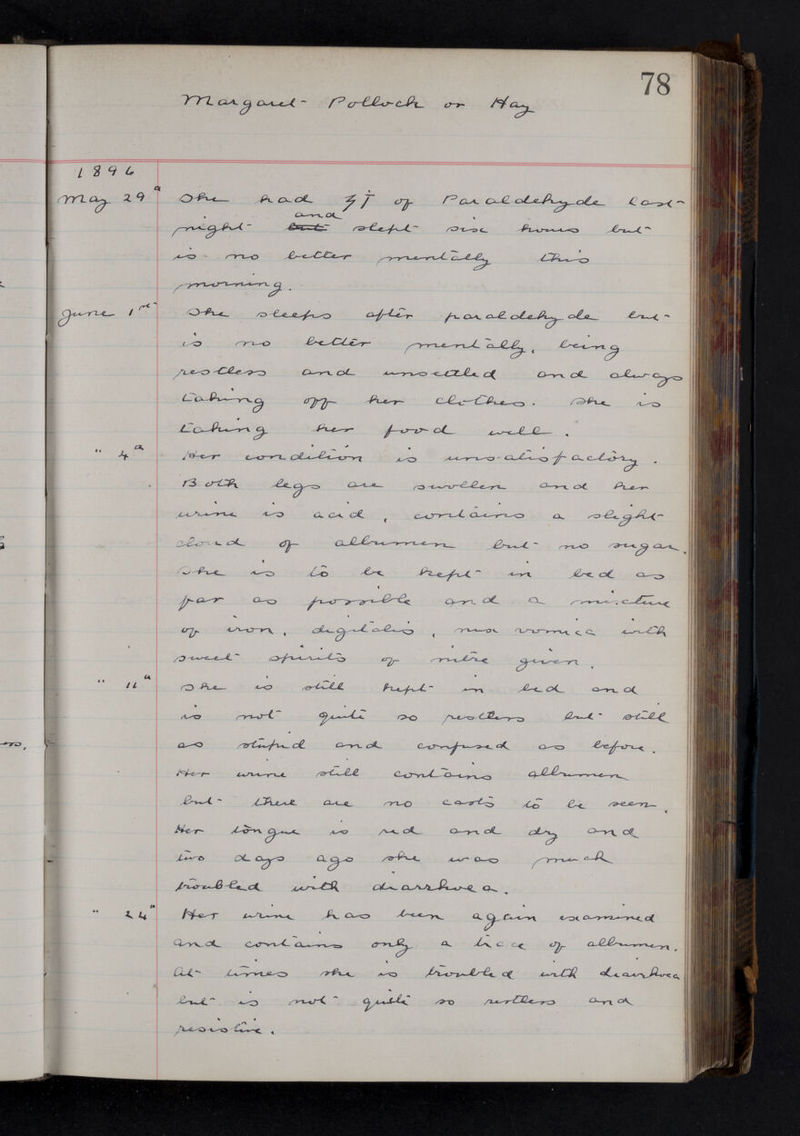 78
Margaret Pollock or Hay
1896
May 29th She had ʒi of Paraldehyde last
night but and slept six hours but
is no better mentally this
morning.
June 1st She sleeps after paraldehyde but
is no better mentally, being
restless and unsettled and always
taking off her clothes. She is
taking her food well.
" 4th Her condition is unsatisfactory.
Both legs are swollen and her
urine is acid, contains a slight
cloud of albumen but no sugar.
She is to be kept in bed as
far as possible and a mixture
of iron, digitalis, nux vomica with
sweet spirits of nitre given.
" 11th She is still kept in bed and
is not quite so restless but still
as stupid and confused as before.
Her urine still contains albumen
but there are no casts to be seen.
Her tongue is red and dry and
two days ago she was much
troubled with diarrhoea.
" 24th Her urine has been again examined
and contains only a trace of albumen.
At times she is troubled with diarrhoea
but is not quite so restless and
resistive.